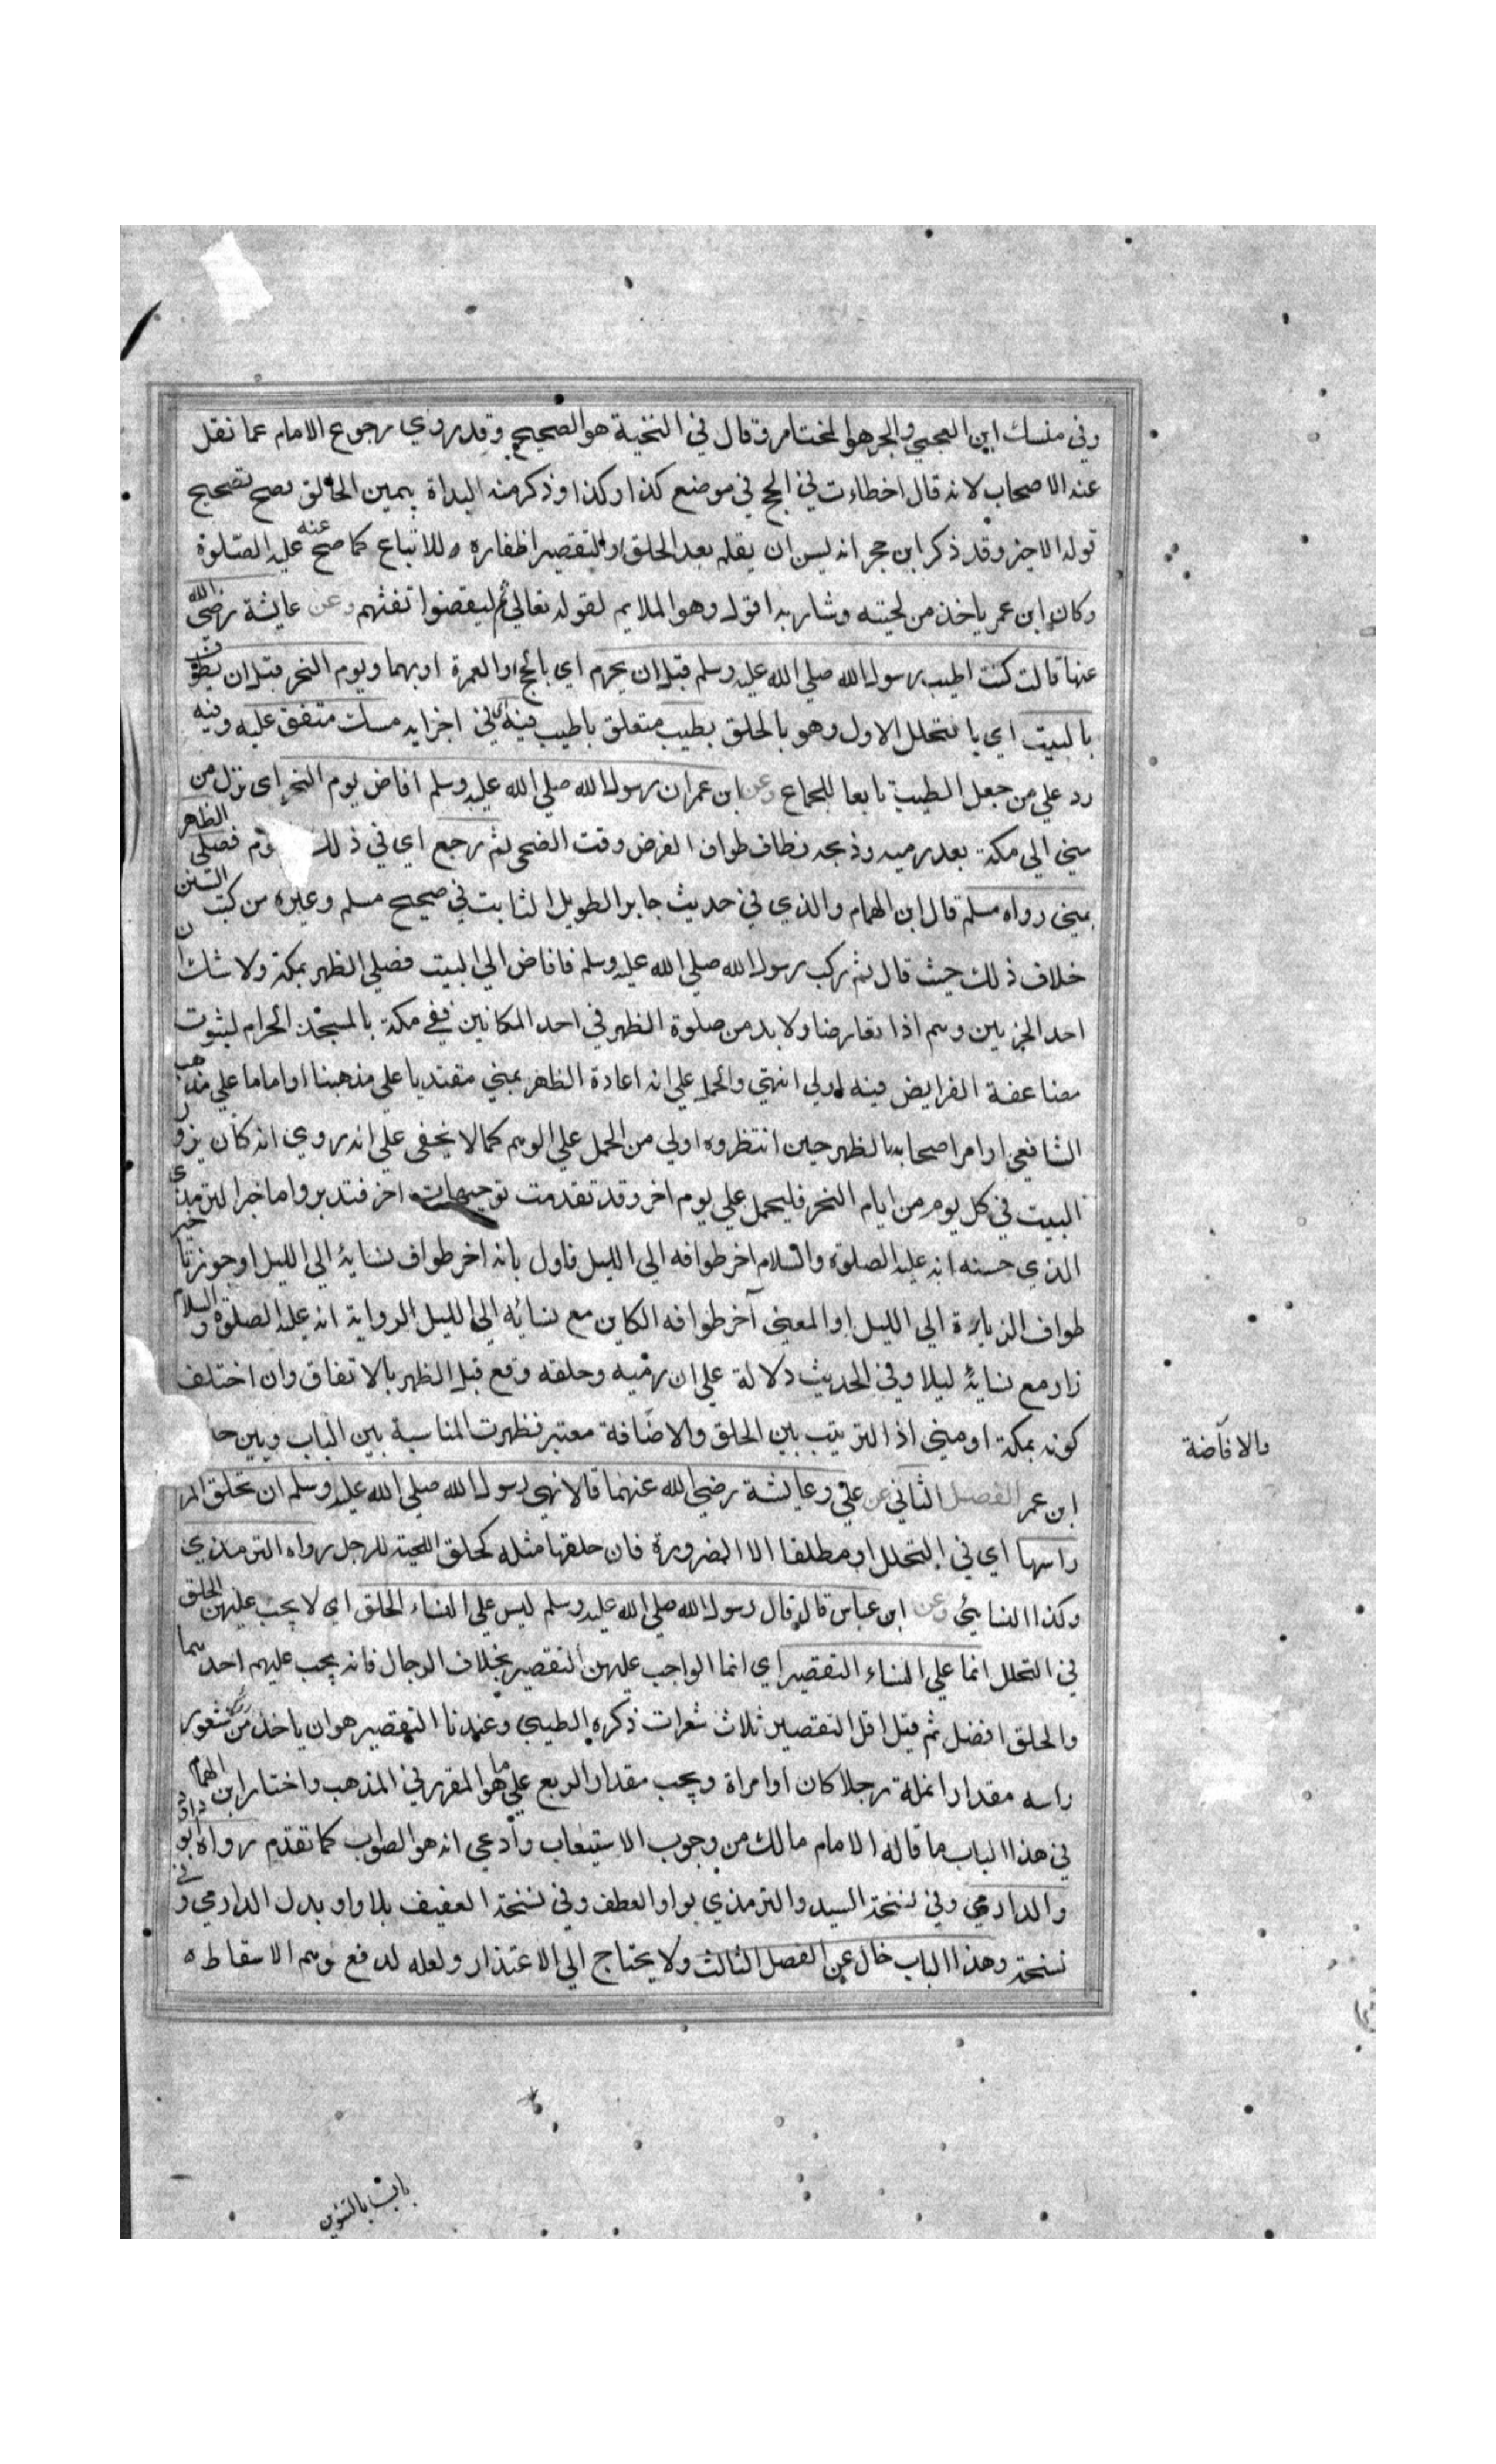 وفي منسك ابن العجمي والبحر هو المختار وقال في النخبة هو الصحيح وقد روي رجوع الامام عما نقل
عنه الاصحاب لانه قال اخطاءت في الحج في موضع كذا وكذا وذكر منه البداة بيمين الحالق فصح تصحيح
قوله الاخير وقد ذكر ابن حجر انه يسن ان يقلم بعد الحلق او التقصير اظفاره للاتباع كما صح عنه عليه الصلوة
وكان ابن عمر ياخذ من لحيته وشاربه اقول وهو الملايم لقوله تعالي ثم ليقضوا تفثهم وعن عايشة رضي الله
عنها قالت كنت اطيب رسول الله صلي الله عليه وسلم قبل ان يحرم اي بالحج او العمرة او بهما ويوم النحر قبل ان يطوف
بالبيت اي بالتحلل الاول وهو بالحلق بطيب متعلق باطيب فيه اي في اجزايه مسك متفق عليه وفيه
رد علي من جعل الطيب تابعا للجماع وعن ابن عمر ان رسول الله صلي الله عليه وسلم افاض يوم النحر اي نزل من
مني الي مكة بعد رميه وذبحه فطاف طواف الفرض وقت الضحي ثم رجع اي في ذلك وم فصلي الظهر
بمني رواه مسلم قال ابن الهمام والذي في حديث جابر الطويل الثابت في صحيح مسلم وغيره من كتب السنن
خلاف ذلك حيث قال ثم ركب رسول الله صلي الله عليه وسلم فافاض الي البيت فصلي الظهر بمكة ولا شك ان
احد الخبرين وهم اذا تعارضا ولا بد من صلوة الظهر في احد المكانين ففي مكة بالمسجد الحرام لثبوت
مضاعفة الفرايض فيه اولي انتهي والحمل علي انه اعادة الظهر بمني مقتديا علي مذهبنا او اماما علي مذهب
الشافعي او امر اصحابه بالظهر حين انتظروه اولي من الحمل علي الوهم كما لا يخفي علي انه روي انه كان يزور
البيت في كل يوم من ايام النحر فليحمل علي يوم اخر وقد تقدمت توجيهات اخر فتدبر واما خبر الترمذي
الذي حسنه انه عليه الصلوة والسلام اخر طوافه الي الليل فاول بانه اخر طواف نسايه الي الليل او جوز تاخير
طواف الزيارة الي الليل او المعني آخر طوافه الكاين مع نسائه الي الليل لرواية انه عليه الصلوة والسلام
زار مع نسايه ليلا وفي الحديث دلالة علي ان رميه وحلقه وقع قبل الظهر بالاتفاق وان اختلف
كونه بمكة او مني اذ الترتيب بين الحلق والاضافة معتبر فظهرت المناسبة بين الباب وبين حا
بالافاضة
ابن عمر الفصل الثاني عن علي وعايشة رضي الله عنهما قالا نهي رسول الله صلي الله عليه وسلم ان تحلق المر
راسها اي في التحلل او مطلقا الا الضرورة فان حلقها مثله كحلق اللحية للرجل رواه الترمذي
وكذا النسايئ وعن ابن عباس قال قال رسول الله صلي الله عليه وسلم ليس علي النساء الحلق اي لا يجب عليهن الحلق
في التحلل انما علي النساء التقصير اي انما الواجب عليهن التقصير بخلاف الرجال فانه يجب عليهم احدهما
والحلق افضل ثم قيل اقل التقصير ثلاث شعرات ذكره الطيبي وعندنا التقصير هو ان ياخذ من شعور
راسه مقدار انملة رجلا كان او امراة ويجب مقدار الربع علي ما هو المقرر في المذهب واختار ابن الهمام
في هذا الباب ما قاله الامام مالك من وجوب الاستيعاب وادعي انه هو الصواب كما تقدم رواه ابو داود
والدارمي وفي نسخة السيد والترمذي بواو العطف وفي نسخة العفيف بلا واو بدل الدارمي وفي
نسخة وهذا الباب خال عن الفصل الثالث ولا يحتاج الي الاعتذار ولعله لدفع توهم الاسقاط
باب بالتنوين